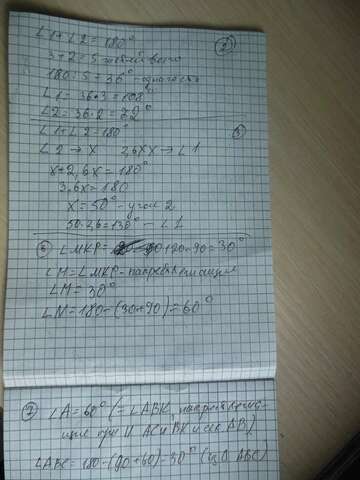 2
∠1+∠2=180°
3+2=5 частей всего
180:5=36°-одна часть
∠1=36·3=108°
∠2=36·2=72°
5
∠1+∠2=180°
∠2→x 2,6x→∠1
x+2,6x=180°
3,6x=180
x=50°-угол 2
50·2,6=130°-∠1
6 ∠MKP=120-90=30°
∠M=∠MKP-накрест лежащие
∠M=30°
∠N=180-(30+90)=60°
7 ∠A=60°(=∠ABK, накрест лежа-
щие при || AC и BK и сек AB)
∠ABC=180-(90+60)=30°(из Δ ABC)